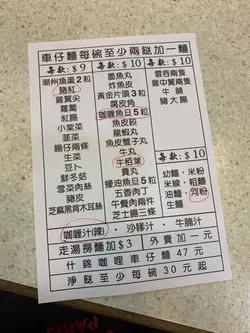 車仔麵每碗至少兩餸加一麵
每款:$9
潮州魚蛋2粒
豬紅
雞翼尖
蘿蔔
紅腸
小棠菜
韮菜
腸仔兩條
生菜
豆卜
鮮冬菇
雪菜肉絲
豬皮
芝麻黑背木耳絲
每款:$10
墨魚丸
炸魚皮
黃金片頭3粒
腐皮角
咖喱魚豆5粒
魚皮餃
龍蝦丸
魚皮墨魚主子
牛丸
牛栢葉
貢丸
蠔油魚豆5粒
五香肉丁
午餐肉兩件
芝士腸三條
每款:$10
雲吞兩隻
雞中翼兩隻
牛腩
豬大腸
每款:$10
幼麵·米粉
米線·粗麵
油麵·河粉
生麵
咖喱汁(辣)·沙嗲汁·牛腩汁
走湯撈麵加$3
外賣加一元
什錦咖哩車仔麵47元
淨餸至少每碗30元起